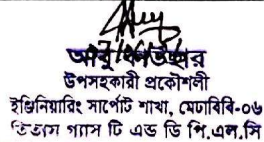 আবু কাউছার
উপসহকারী প্রকৌশলী
ইঞ্জিনিয়ারিং সার্পোট শাখা, মেঢাবিবি-০৬
তিতাস গ্যাস টি এন্ড ডি পি.এল.সি